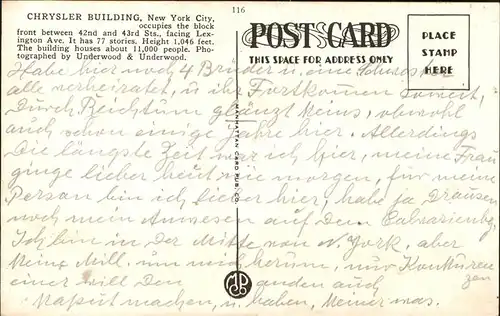 CHRYSLER BUILDING, New York City,
occupies the block
front between 42nd and 43rd Sts., facing Lex-
ington Ave. It has 77 stories. Height 1,046 feet.
The building houses about 11,000 people. Pho-
tographed by Underwood & Underwood.
116
POST CARD
THIS SPACE FOR ADDRESS ONLY
PLACE
STAMP
HERE
MANHATTAN CARD PUB. CO.
Habe hier noch 4 Brüder u. eine Schwester
alle verheiratet, u ihr Fortkommen soweit,
Durch Reichtum glänzt Keins, obwohl
auch schon einige Jahre hier. Allerdings
Die längste Zeit war ich hier, meine Frau
ginge lieber heut wie morgen, für meine
Person bin ich lieber hier, habe ja Draussen
noch mein Anwesen auf dem Calvarienbg,
Ich bin in der Mitte von N. York, aber
Meine will, um mich herum, nur Konkuren
einer will Den anden auch
Kaput machen, u. haben, Keiner was.